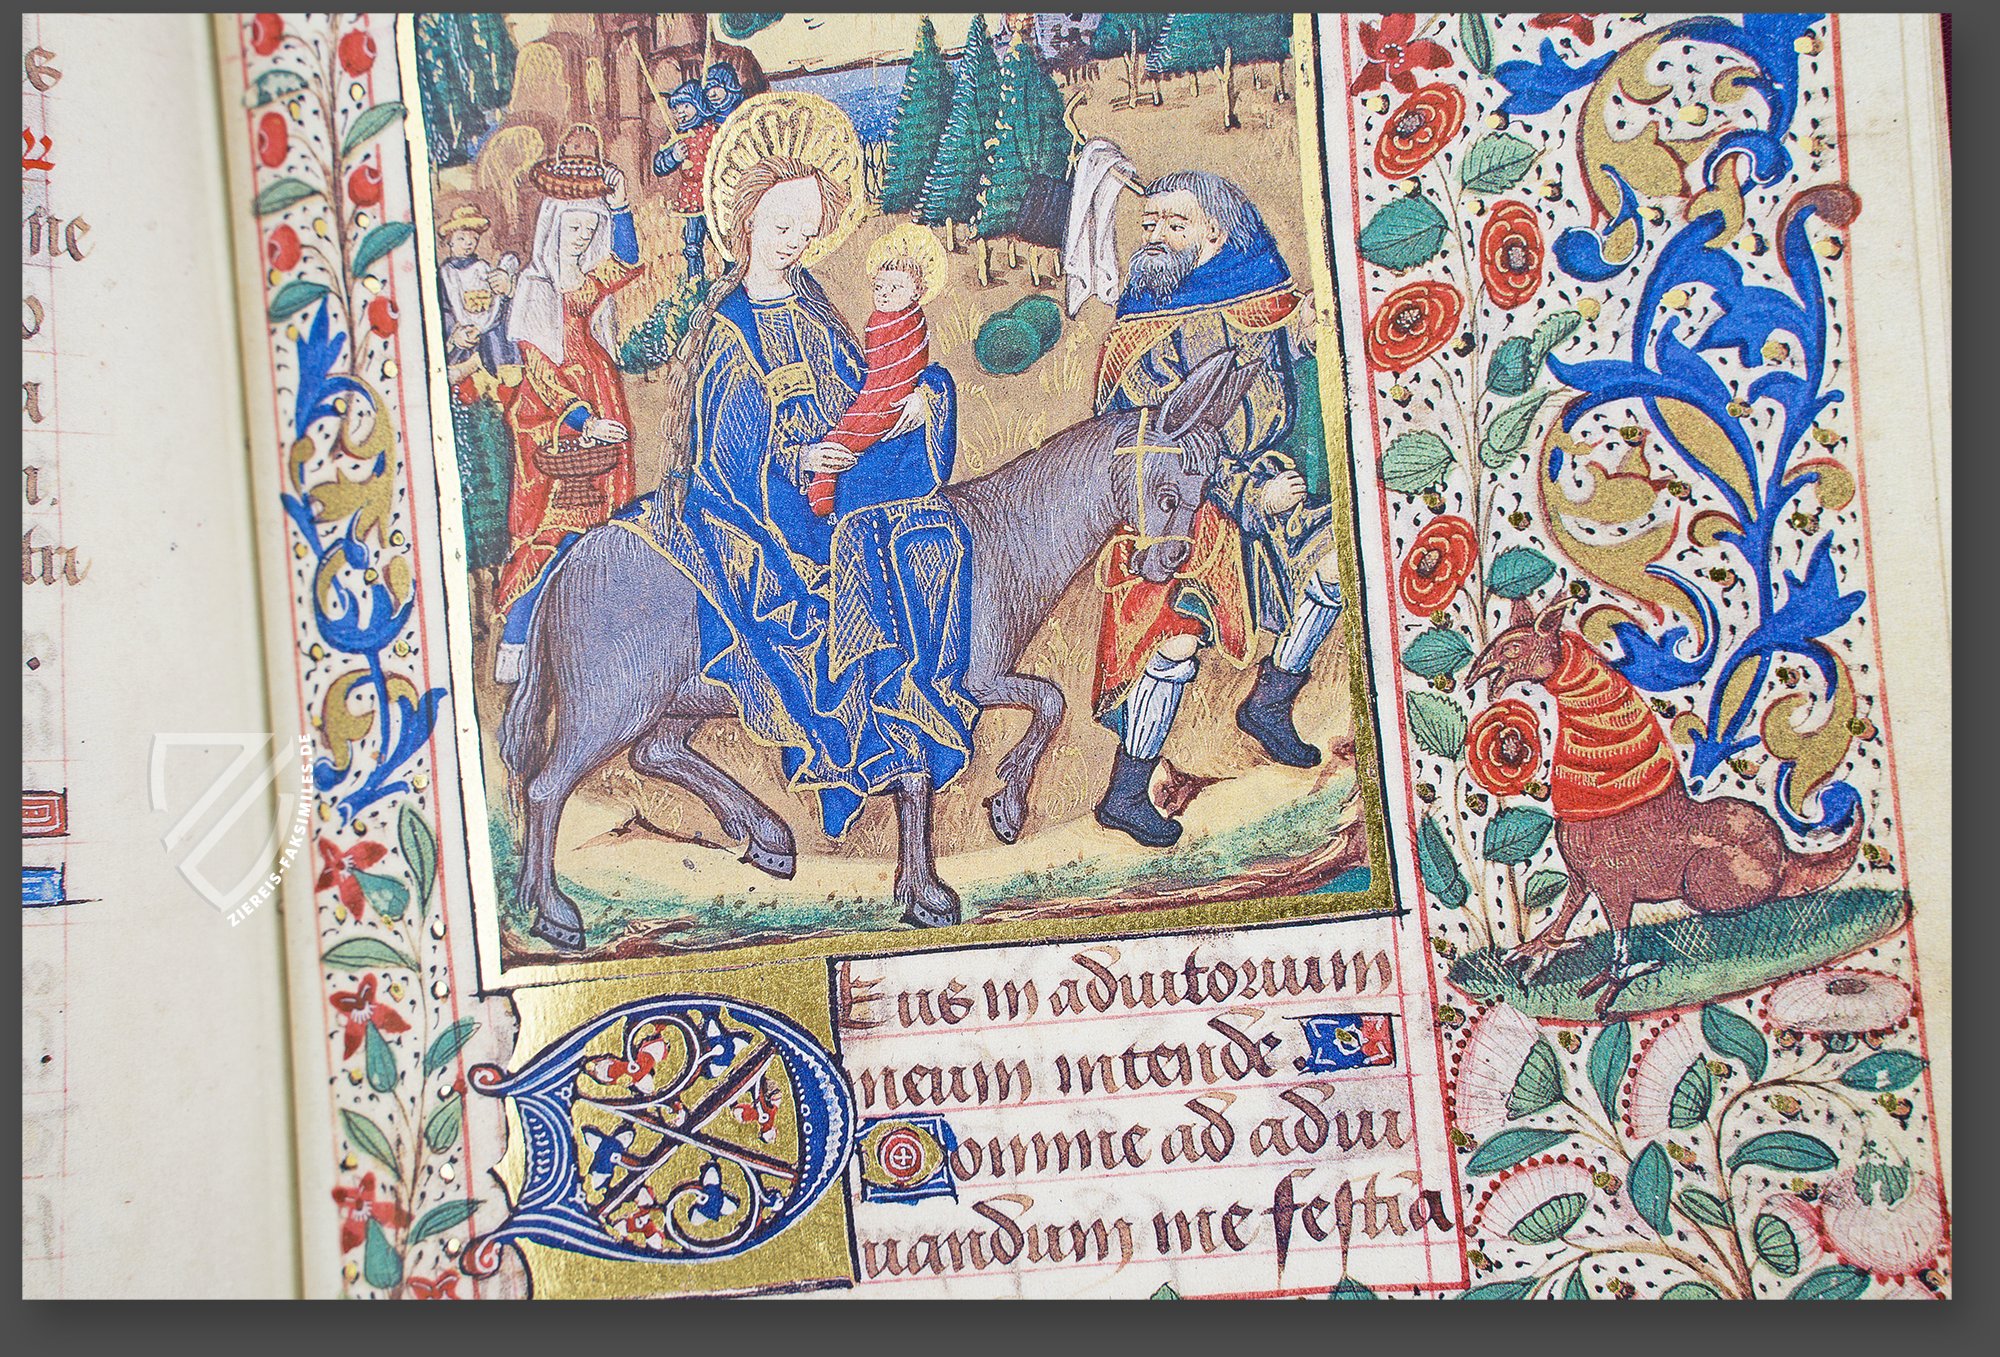 s
ne
o
a
i.
tri
Deus in adiutorium
meum intende .
Domine ad adiu
uandum me festiā
ZIEREIS-FAKSIMILES.DE